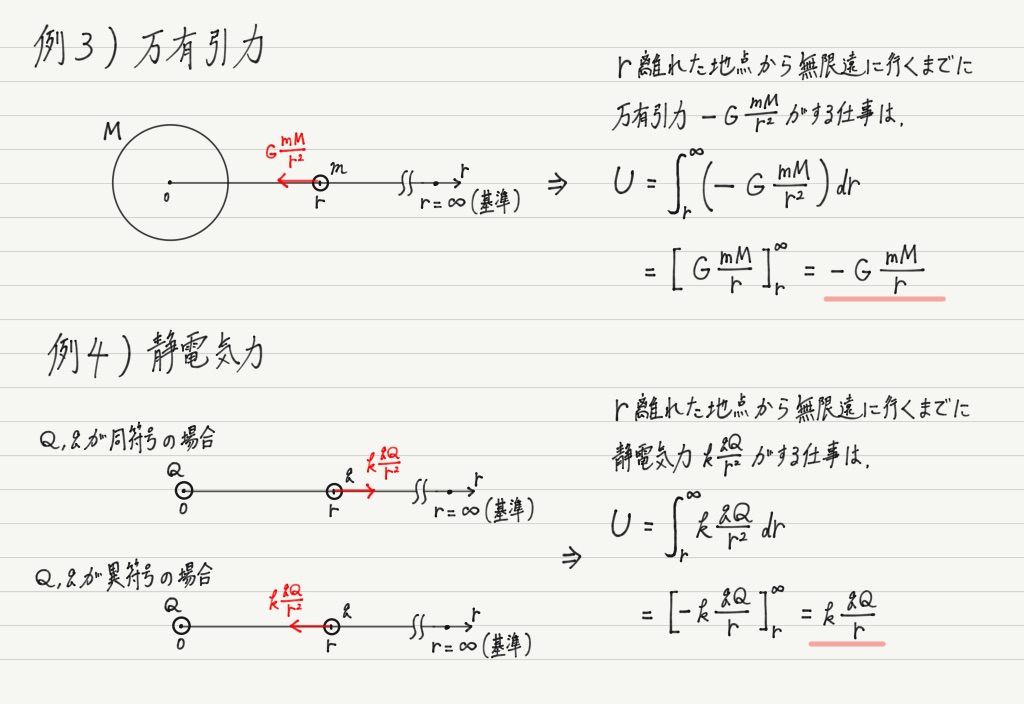 例3) 万有引力
M
G mM/r²
m
r
0
r
r=∞(基準)
⇒
r離れた地点から無限遠に行くまでに
万有引力 −G mM/r² がする仕事は,
U = ∫_r^∞ (−G mM/r²) dr
= [G mM/r]_r^∞ = −G mM/r
例4) 静電気力
Q,qが同符号の場合
Q
q
k qQ/r²
r
0
r
r=∞(基準)
Q,qが異符号の場合
Q
k qQ/r²
q
r
0
r
r=∞(基準)
⇒
r離れた地点から無限遠に行くまでに
静電気力 k qQ/r² がする仕事は,
U = ∫_r^∞ k qQ/r² dr
= [−k qQ/r]_r^∞ = k qQ/r